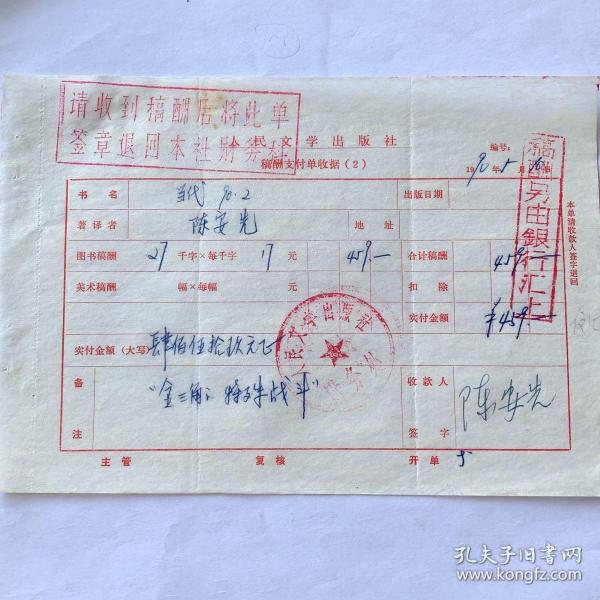 请收到稿酬后将此单
签章退回本社财务科
人民文学出版社
稿酬支付单收据(2)
编号:
1990年5月 日
稿酬另由銀行汇上
书名 当代 90.2 出版日期
著译者 陈安先 地址
图书稿酬 27 千字×每千字 17 元 459.— 合计稿酬 459.—
美术稿酬 幅×每幅 元 扣除
实付金额 ¥459.—
实付金额(大写)肆佰伍拾玖元正
人民文学出版社
财务处
备注 "金三角:特殊战斗" 收款人签字 陈安先
主管 复核 开单
本单请收款人签字退回
孔夫子旧书网
www.kongfz.com